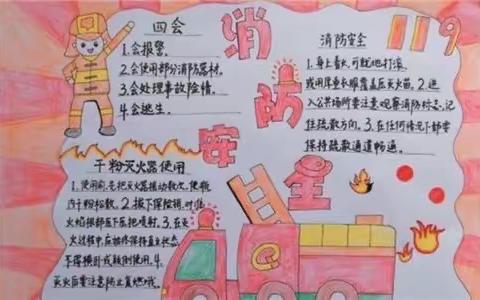 四会
1.会报警.
2.会使用部分消防器材.
3.会处理事故险情.
4.会逃生.
消防安全
119
消防安全
1.身上着火,可就地打滚,
或用厚重衣服覆盖压灭火苗。2.进
入公共场所要注意观察消防标志,记
住疏散方向。3.在任何情况下都要
保持疏散通道畅通。
干粉灭火器使用
1.使用前,先把灭火器摇动数次,使瓶
内干粉松散。2.拔下保险销,对准
火焰根部压下压把喷射。3.在灭
火过程中,应始终保持直立状态,
不得横卧或颠倒使用。4.
灭火后要注意防止复燃